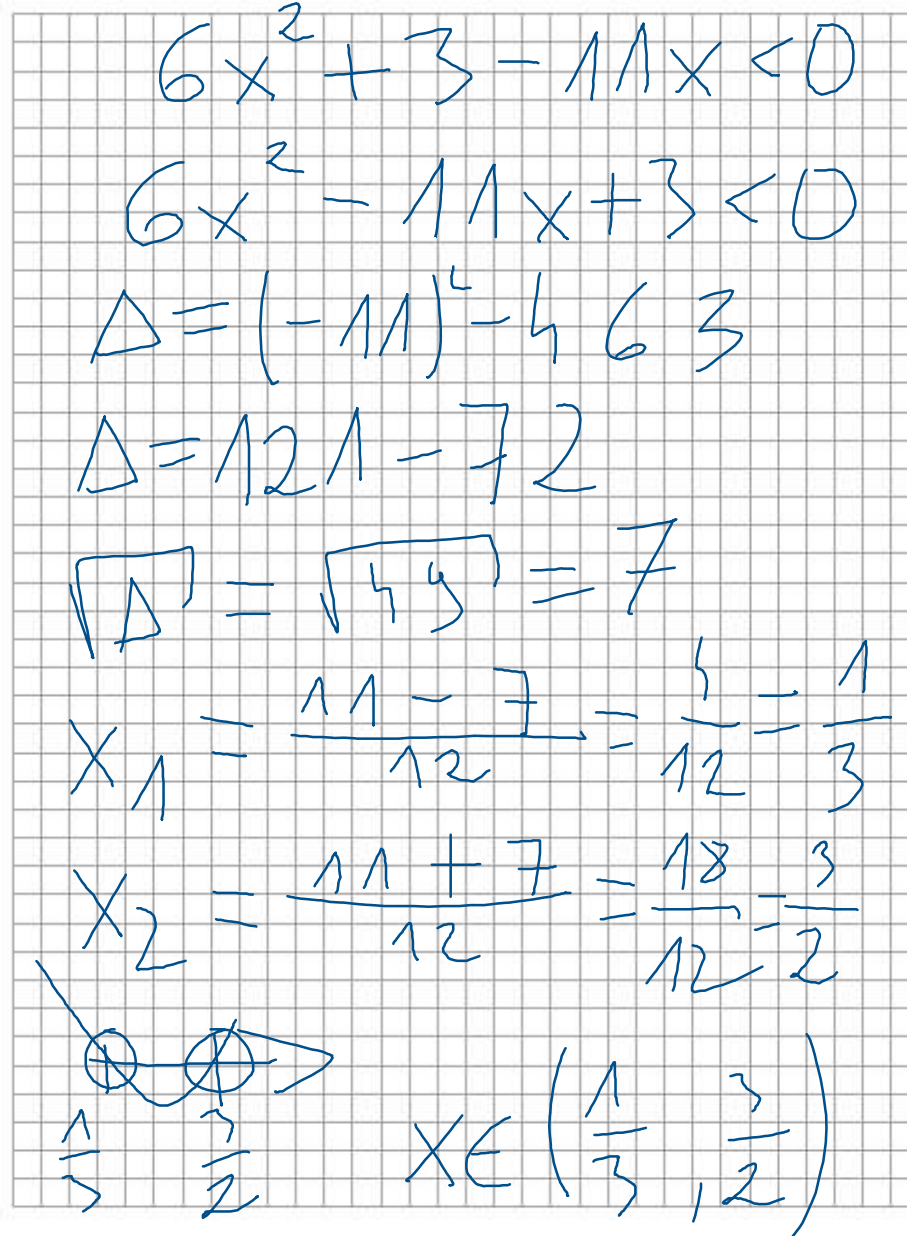 6x² + 3 - 11x < 0
6x² - 11x + 3 < 0
Δ = (-11)² - 4 6 3
Δ = 121 - 72
√Δ = √49 = 7
x₁ = (11 - 7)/12 = 4/12 = 1/3
x₂ = (11 + 7)/12 = 18/12 = 3/2
1/3 3/2 x ∈ (1/3, 3/2)